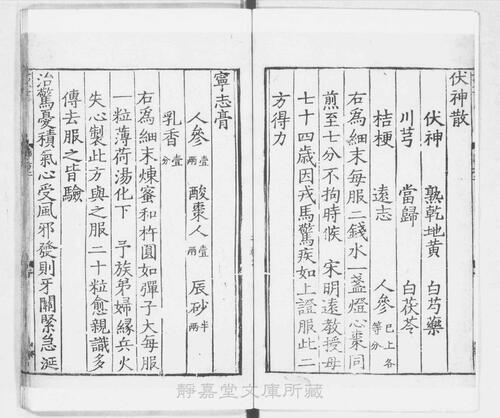 伏神散
伏神　熟乾地黄　白芍藥
川芎　當歸　白茯苓
桔梗　遠志　人參已上各等分
右爲細末每服二錢水一盞燈心棗同
煎至七分不拘時候　宋明遠教授母
七十四歲因戎馬驚疾如上證服此二
方得力
寧志膏
人參壹兩　酸棗人壹兩　辰砂半兩
乳香壹分
右爲細末煉蜜和杵圓如彈子大每服
一粒薄荷湯化下　予族弟婦緣兵火
失心製此方與之服二十粒愈親識多
傳去服之皆驗
治驚憂積氣心受風邪發則牙關緊急涎
靜嘉堂文庫所藏